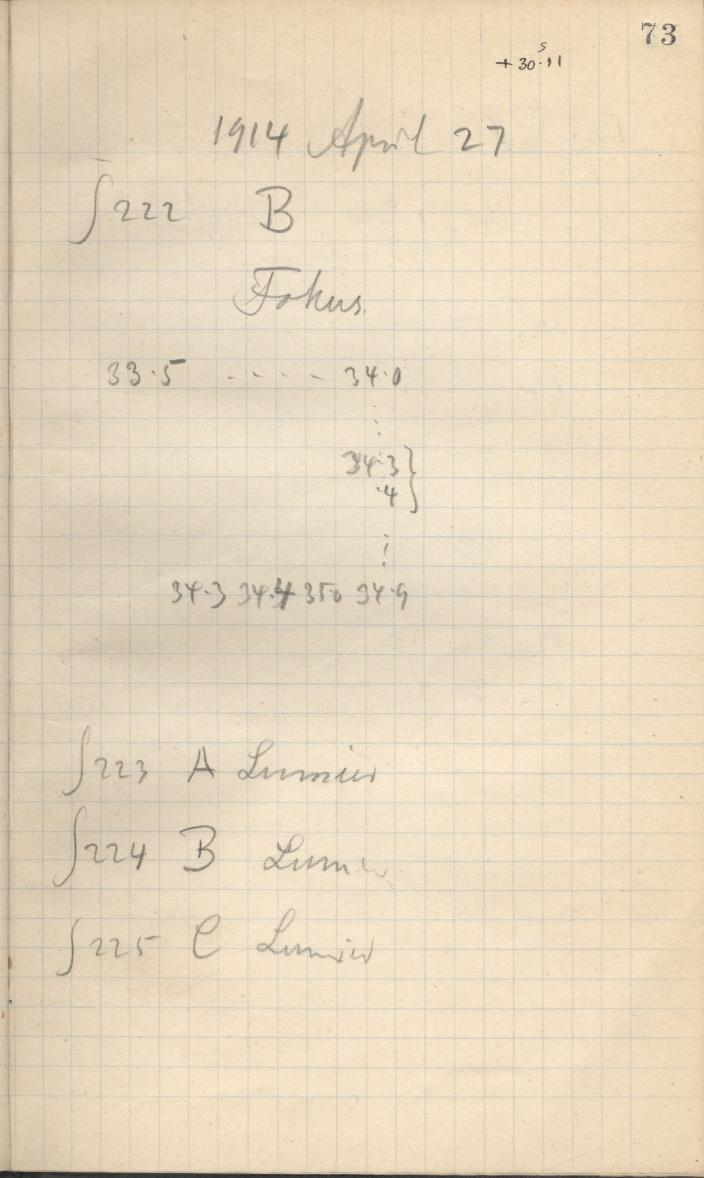 73
+ 30ˢ.11
1914 April 27
∫222 B
Fokus.
33.5 - - - - 34.0
34.3 }
.4
34.3 34.4 35.0 34.9
∫223 A Lumier
∫224 B Lumier
∫225 C Lumier